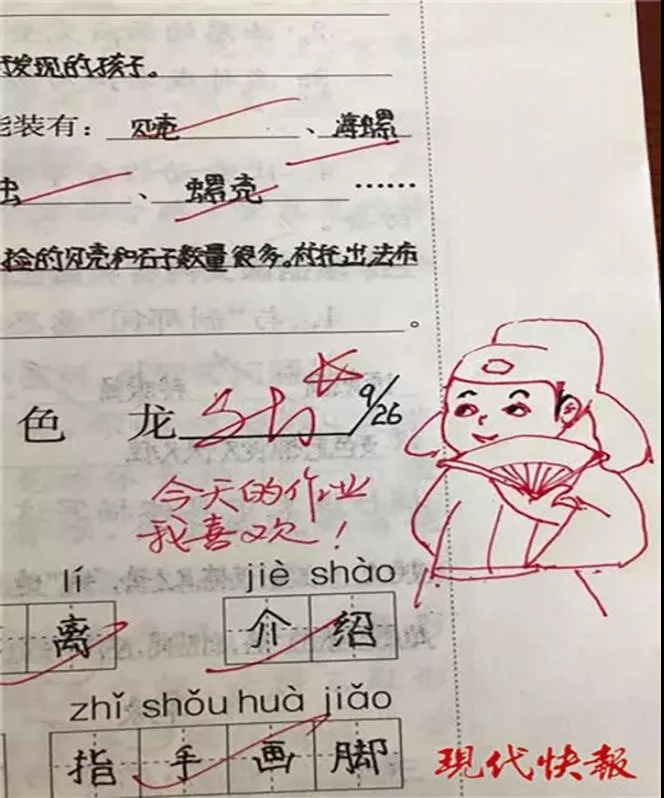 发现的孩子。
能装有：贝壳、海螺
虫、螺壳……
捡的贝壳和石子数量很多。
。
色 龙
9/26
今天的作业
我喜欢！
lí jiè shào
离 介绍
zhǐ shǒu huà jiǎo
指手画脚
现代快報